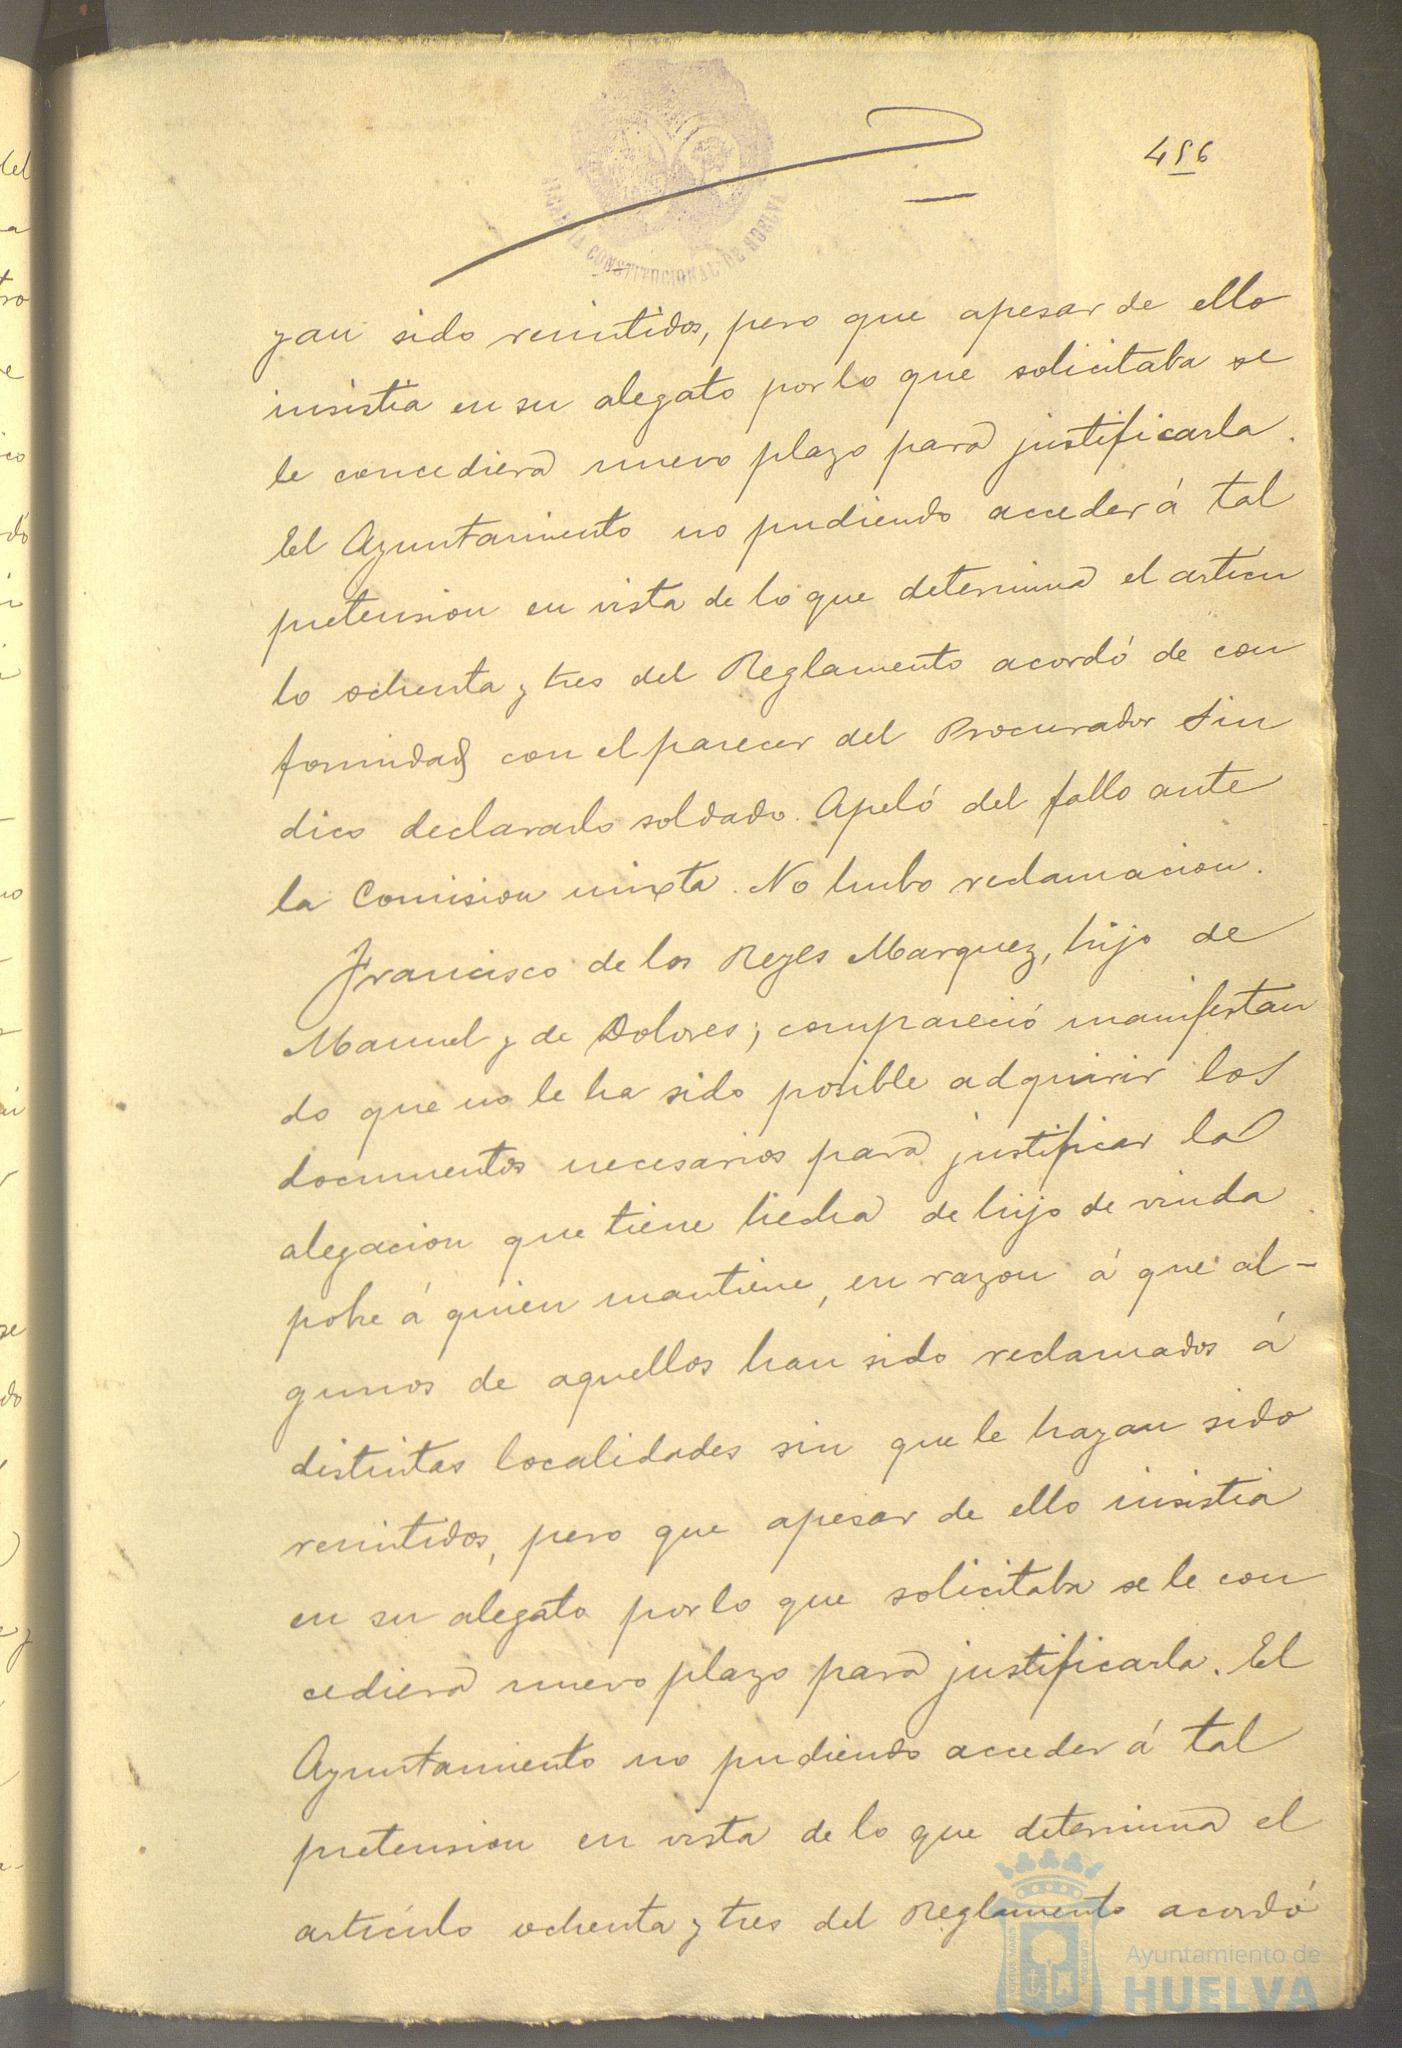 456
ALCALDIA CONSTITUCIONAL DE HUELVA
yan sido remitidos, pero que apesar de ello
insistia en su alegato por lo que solicitaba se
le concediera nuevo plazo para justificarla.
El Ayuntamiento no pudiendo acceder á tal
pretension en vista de lo que determina el articu
lo ochenta y tres del Reglamento acordó de con
formidad con el parecer del Procurador Sin
dico declararlo soldado. Apeló del fallo ante
la Comision mixta. No hubo reclamacion.
Francisco de los Reyes Marquez, hijo de
Manuel y de Dolores; compareció manifestan
do que no le ha sido posible adquirir los
documentos necesarios para justificar la
alegacion que tiene hecha de hijo de viuda
pobre á quien mantiene, en razon á que al-
gunos de aquellos han sido reclamados á
distintas localidades sin que le hayan sido
remitidos, pero que apesar de ello insistia
en su alegato por lo que solicitaba se le con
cediera nuevo plazo para justificarla. El
Ayuntamiento no pudiendo acceder á tal
pretension en vista de lo que determina el
artículo ochenta y tres del Reglamento acordó
Ayuntamiento de
HUELVA